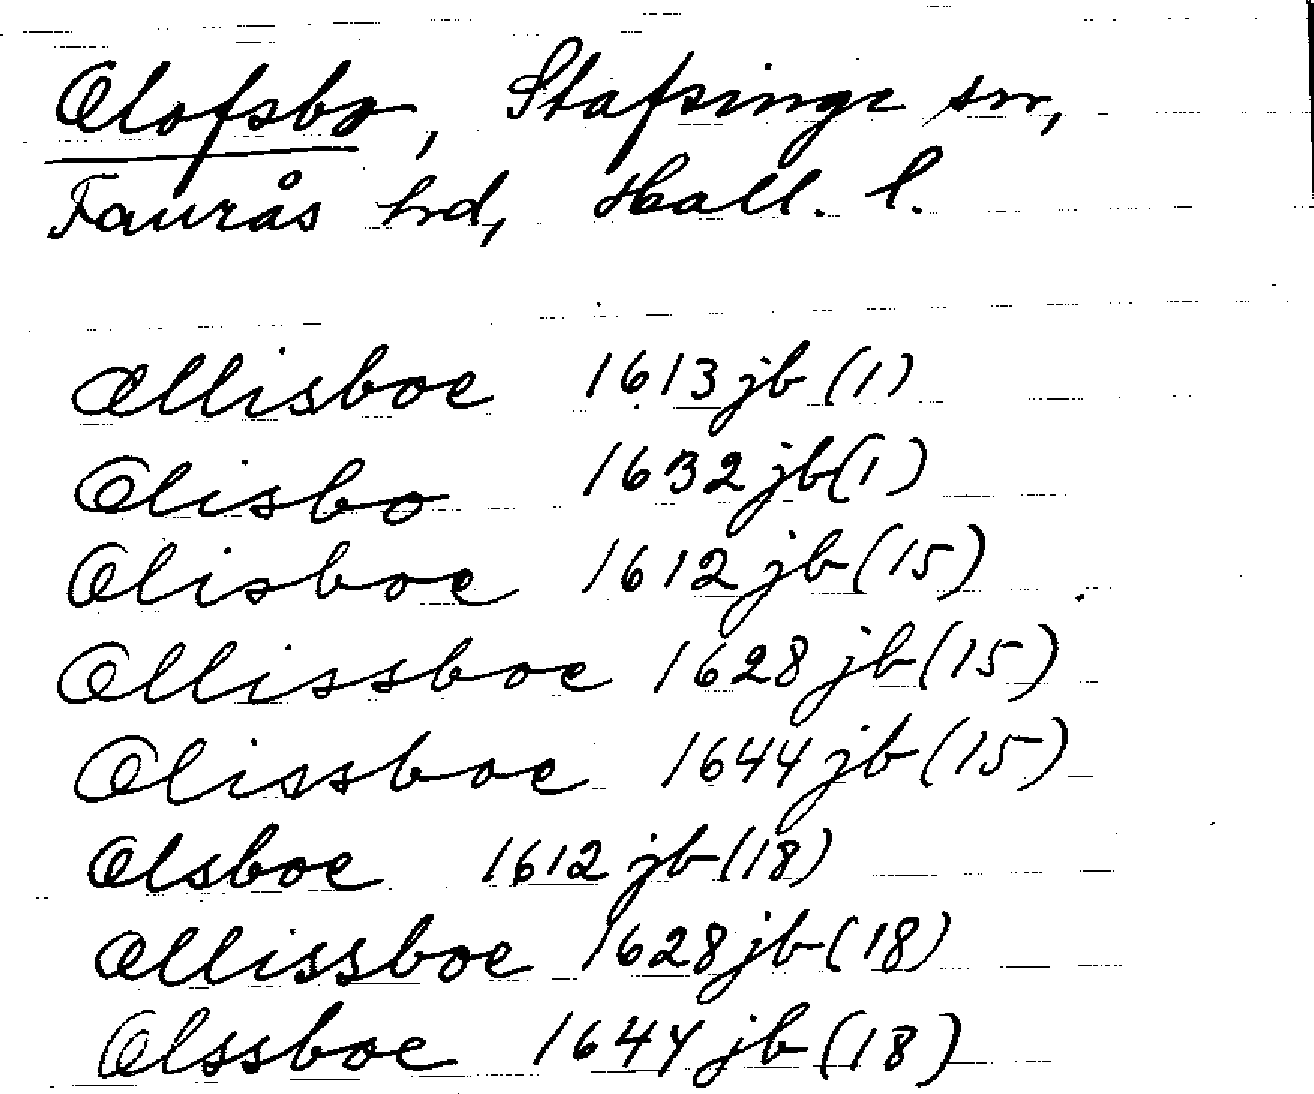 Olofsbo, Stafsinge sn,
Faurås hrd, Hall. l.
Ollisboe 1613 jb (1)
Olisbo 1632 jb (1)
Olisboe 1612 jb (15)
Ollissboe 1628 jb (15)
Olissboe 1644 jb (15)
Olsboe 1612 jb (18)
Ollissboe 1628 jb (18)
Olssboe 1644 jb (18)